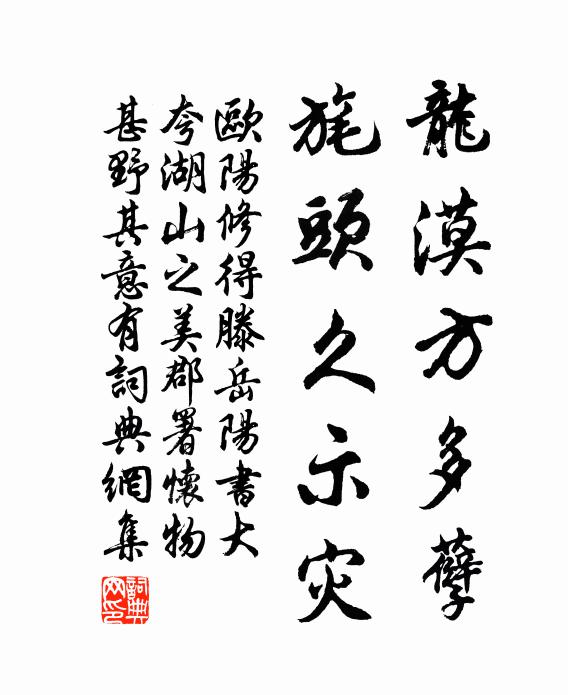 龍漠方多孽
旄頭久示灾
歐陽修得滕岳陽書大
夸湖山之美郡署懷物
甚野其意有詞典網集
詞典網印